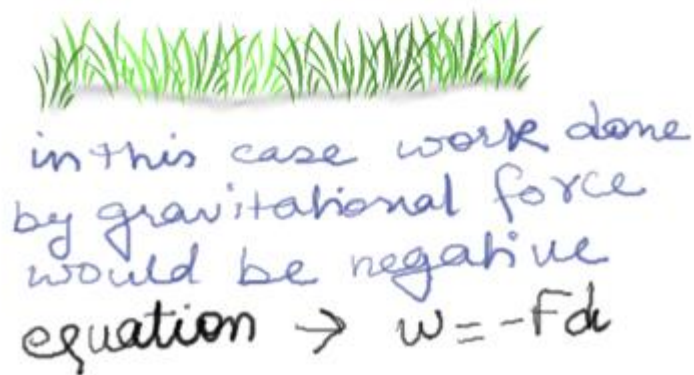 in this case work done
by gravitational force
would be negative
equation → w = -Fd